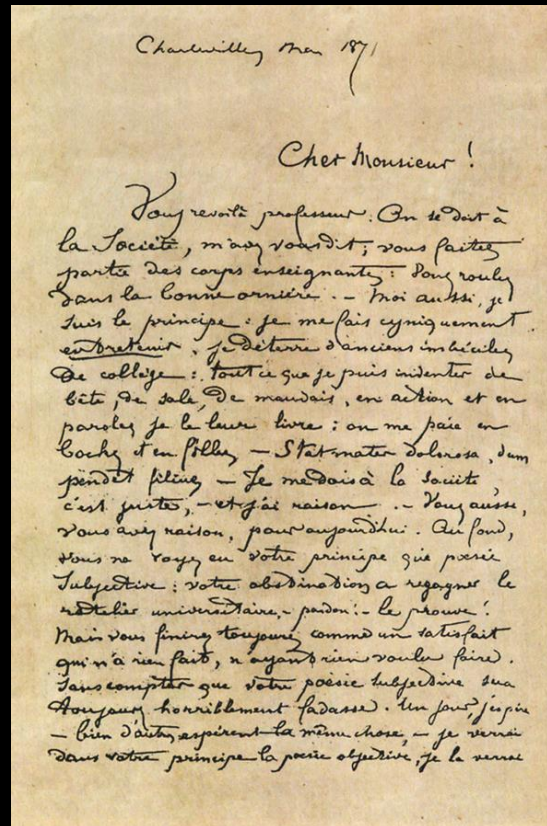 Charleville, Mai 1871
Cher Monsieur !
Vous revoilà professeur. On se doit à
la Société, m'avez vous dit ; vous faites
partie des corps enseignants : vous roulez
dans la bonne ornière. – Moi aussi, je
suis le principe : je me fais cyniquement
entretenir ; je déterre d'anciens imbéciles
de collège : tout ce que je puis inventer de
bête, de sale, de mauvais, en action et en
paroles, je le leur livre : on me paie en
bocks et en filles – Stat mater dolorosa, dum
pendet filius – Je me dois à la Société,
c'est juste, – et j'ai raison. – Vous aussi,
vous avez raison, pour aujourd'hui. Au fond,
vous ne voyez en votre principe que poésie
subjective : votre obstination a regagner le
ratelier universitaire, – pardon ! – le prouve !
Mais vous finirez toujours comme un satisfait
qui n'a rien fait, n'ayant rien voulu faire.
Sans compter que votre poésie subjective sera
toujours horriblement fadasse. Un jour, j'espère
– bien d'autres espèrent la même chose, – je verrai
dans votre principe la poésie objective, je la verrai